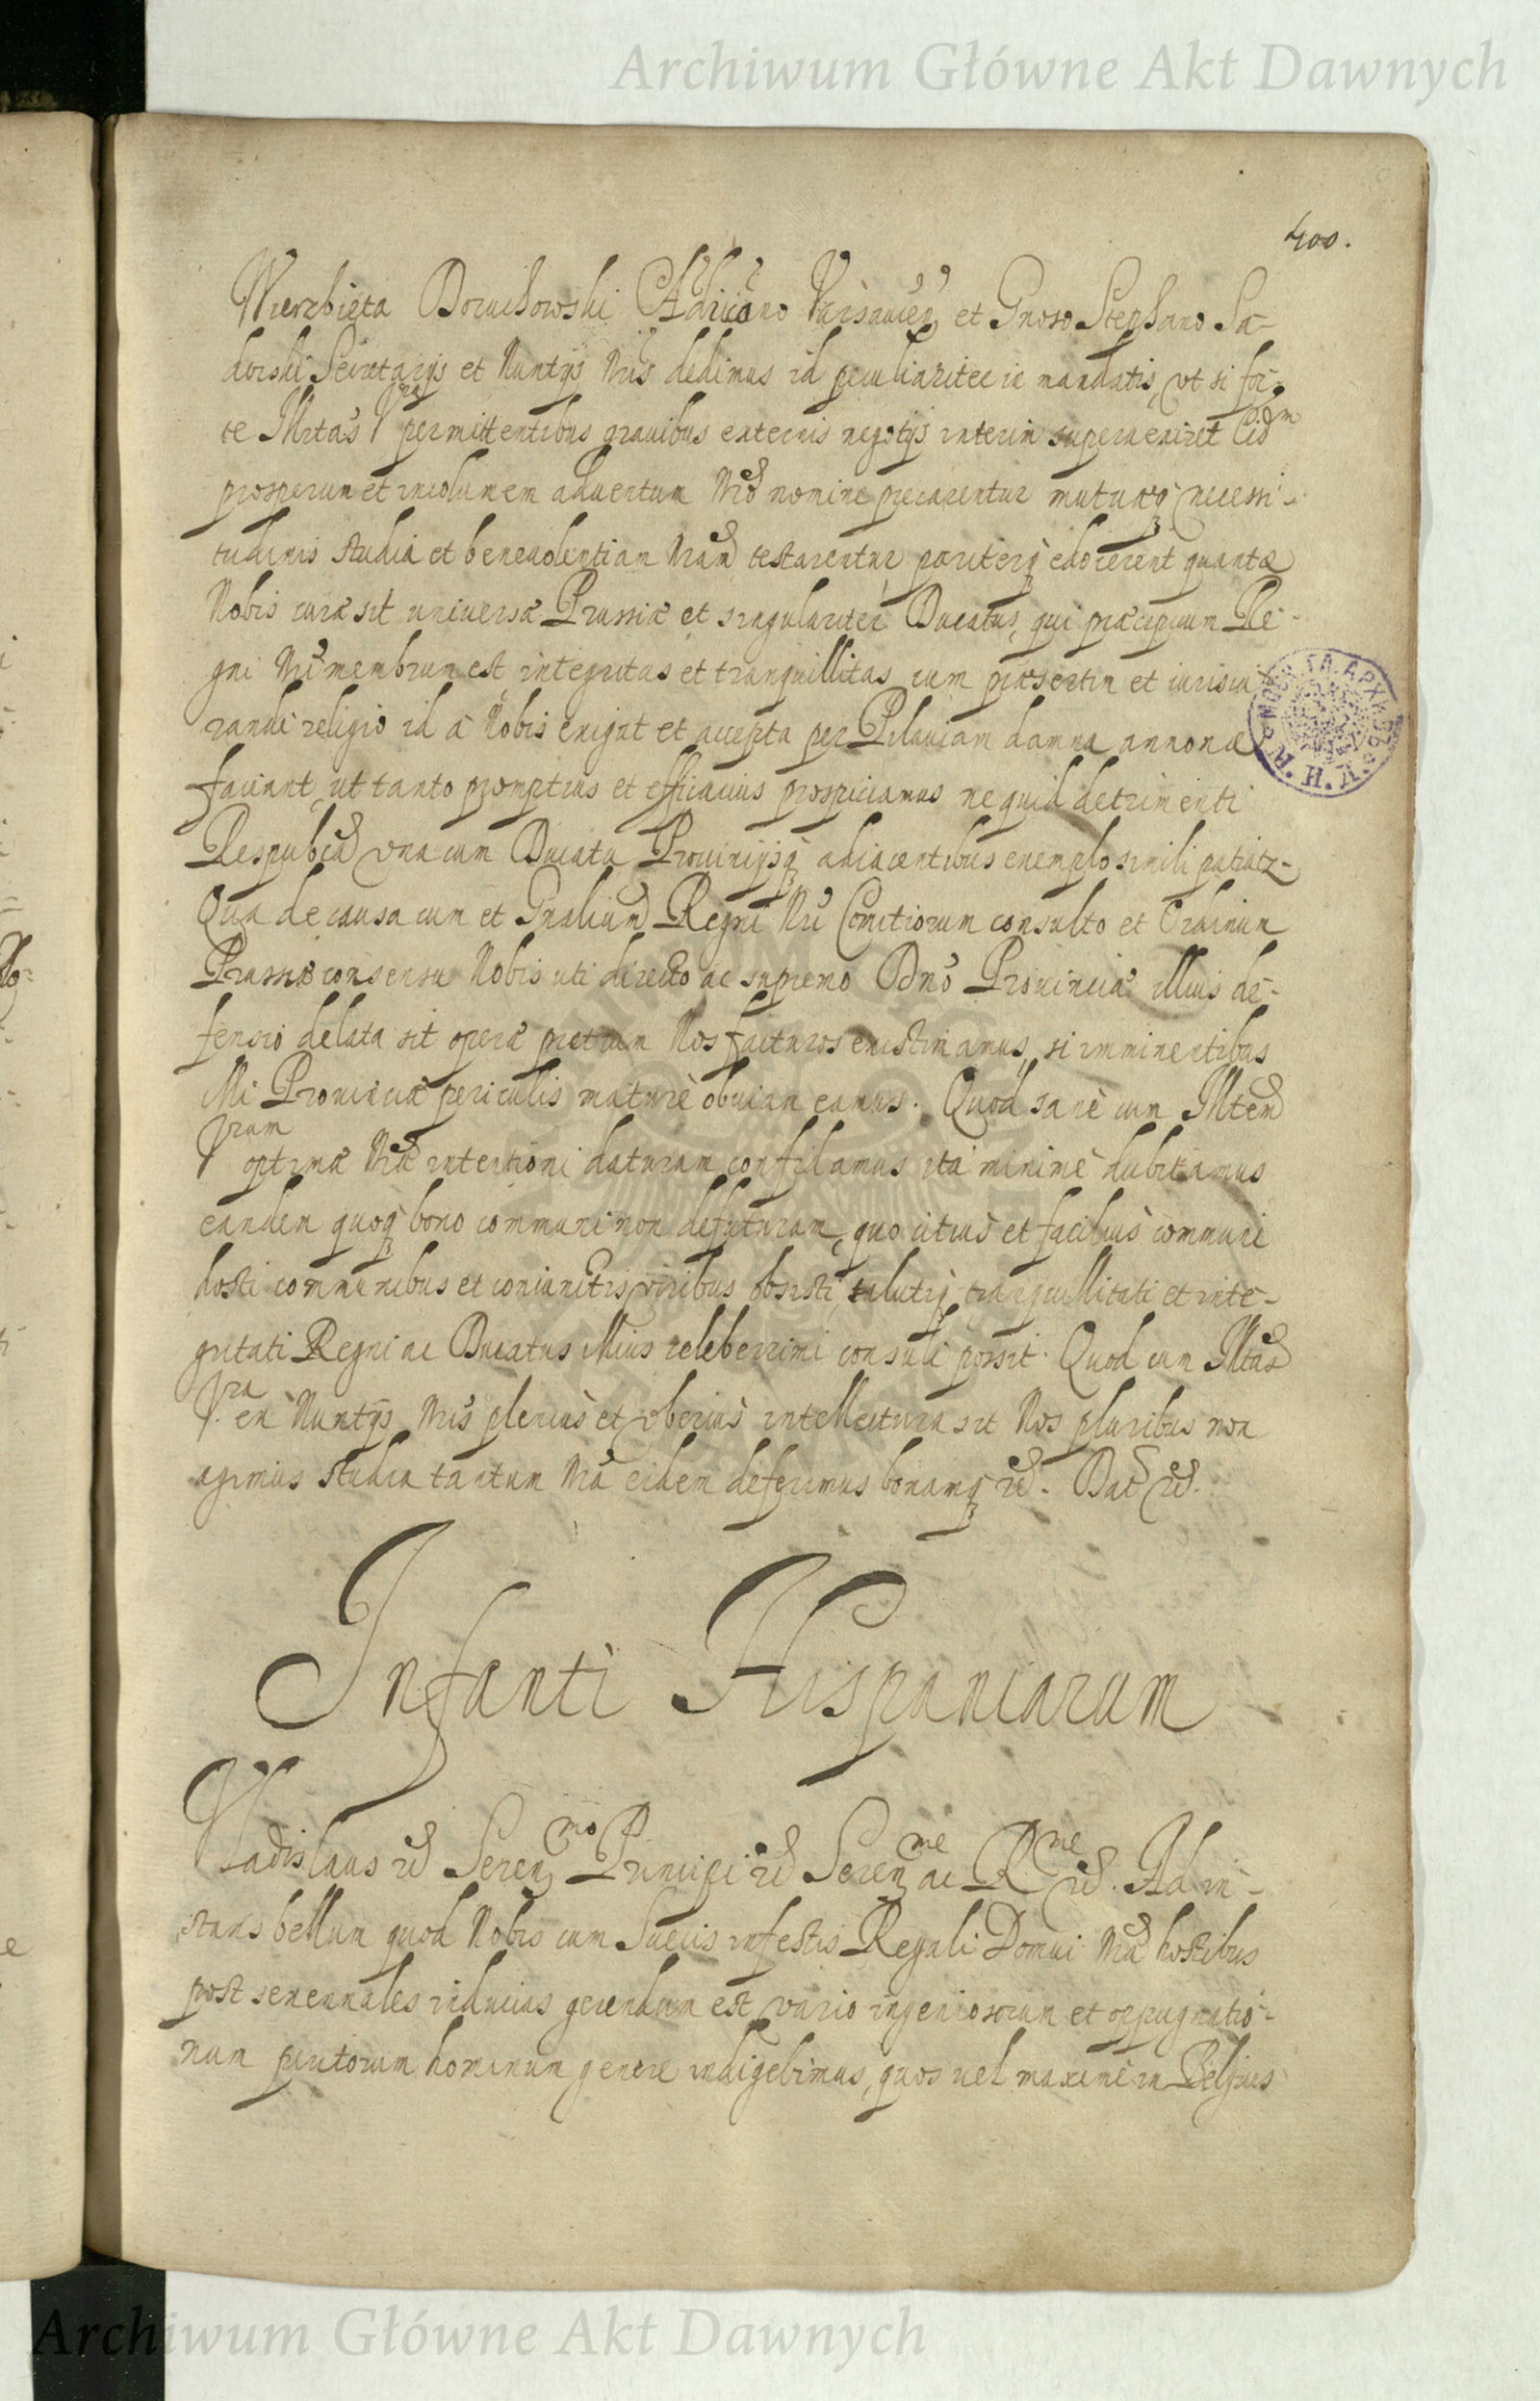 Archiwum Główne Akt Dawnych
400.
Wierzbięta Doruchowski Varsavien et Gnoso Stephano Sa-
dorski Secretarijs et Nuntijs Nris dedimus id peculiariter in mandatis, vt si for-
te Illrtas Vra permittentibus grauibus externis negotijs interim superueniret Eidm
prosperum et incolumem aduentum Nro nomine precarentur mutuaq necessi-
tudinis studia et beneuolentiam Nram testarentur pariterq edocerent quantæ
Nobis curæ sit uniuersæ Prussiæ et singulariter Ducatus, qui præcipuum Re-
gni Nri membrum est integritas et tranquillitas cum præsertim et iurisiu
randi religio id à Nobis exigat et accepta per Pilauiam damna annonæ
faciant, ut tanto promptius et efficacius prospiciamus ne quid detrimenti
Respublca vna cum Ducatu Prouincijsq adiacentibus exemplo simili patiatr
Qua de causa cum et Gnalium Regni Nri Comitiorum consulto et Ordinum
Prussiæ consensu Nobis uti directo ac supremo Dno Prouinciæ illius de-
fensio delata sit operæ pretium Nos facturos existimamus, si imminentibus
illi Prouinciæ periculis maturè obuiam eamus. Quod sanè cum Illtem
Vram optimæ Nræ intentioni daturam confidamus ita minimè dubitamus
eandem quoq bono communi non defuturam, quo citius et facilius communi
hosti communibus et coniunctis viribus obsisti, salutiq tranquillitati et inte-
gritati Regni ac Ducatus illius celeberrimi consuli possit. Quod cum Illtas
Vra ex Nuntijs Nris plenius et vberius intellectura sit Nos pluribus non
agimus studia tantum Nra eidem deferimus bonamq etc. Dat etc.
Infanti Hispaniarum
Vladislaus etc Seren mo Principi etc Seren me ac R me etc. Ad in-
stans bellum quod Nobis cum Suecis infestis Regali Domui Nræ hostibus
post sexennales inducias gerendum est vario ingeniosorum et oppugnatio-
num peritorum hominum genere indigebimus, quos uel maximè in Belgicis
Archiwum Główne Akt Dawnych